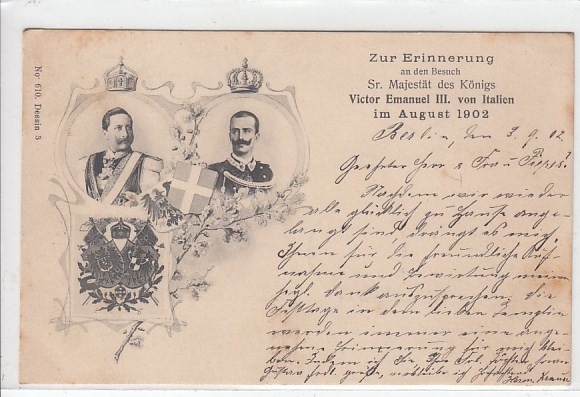 No. 610. Dessin 3
Zur Erinnerung
an den Besuch
Sr. Majestät des Königs
Victor Emanuel III. von Italien
im August 1902
Berlin, den 3. 9. 02
Geehrter Herr & Frau
Nachdem wir wieder
alle glücklich zu Hause ange-
langt sind drängt es mich,
Ihnen für die freundliche Auf-
nahme und Bewirtung meinen
herzl. Dank auszusprechen; die
Festtage in dem lieben
werden immer eine ange-
nehme Erinnerung für mich blei-
ben. Indem ich Sie
Gustav herzl. grüße, verbleibe ich
Herm. Krause